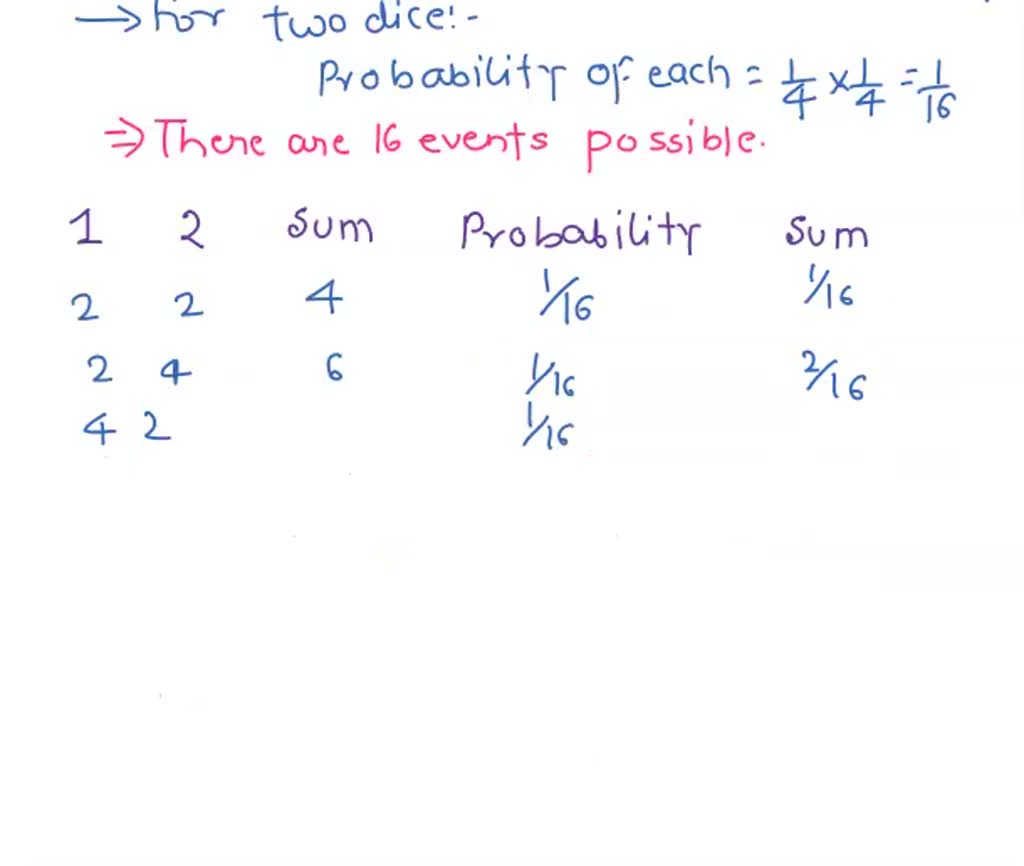 → For two dice:-
Probability of each = 1/4 × 1/4 = 1/16
⇒ There are 16 events possible.
1 2 Sum Probability Sum
2 2 4 1/16 1/16
2 4 6 1/16 2/16
4 2 1/16